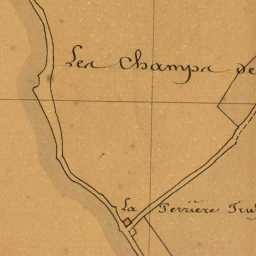 Les Champs de
La Perrière